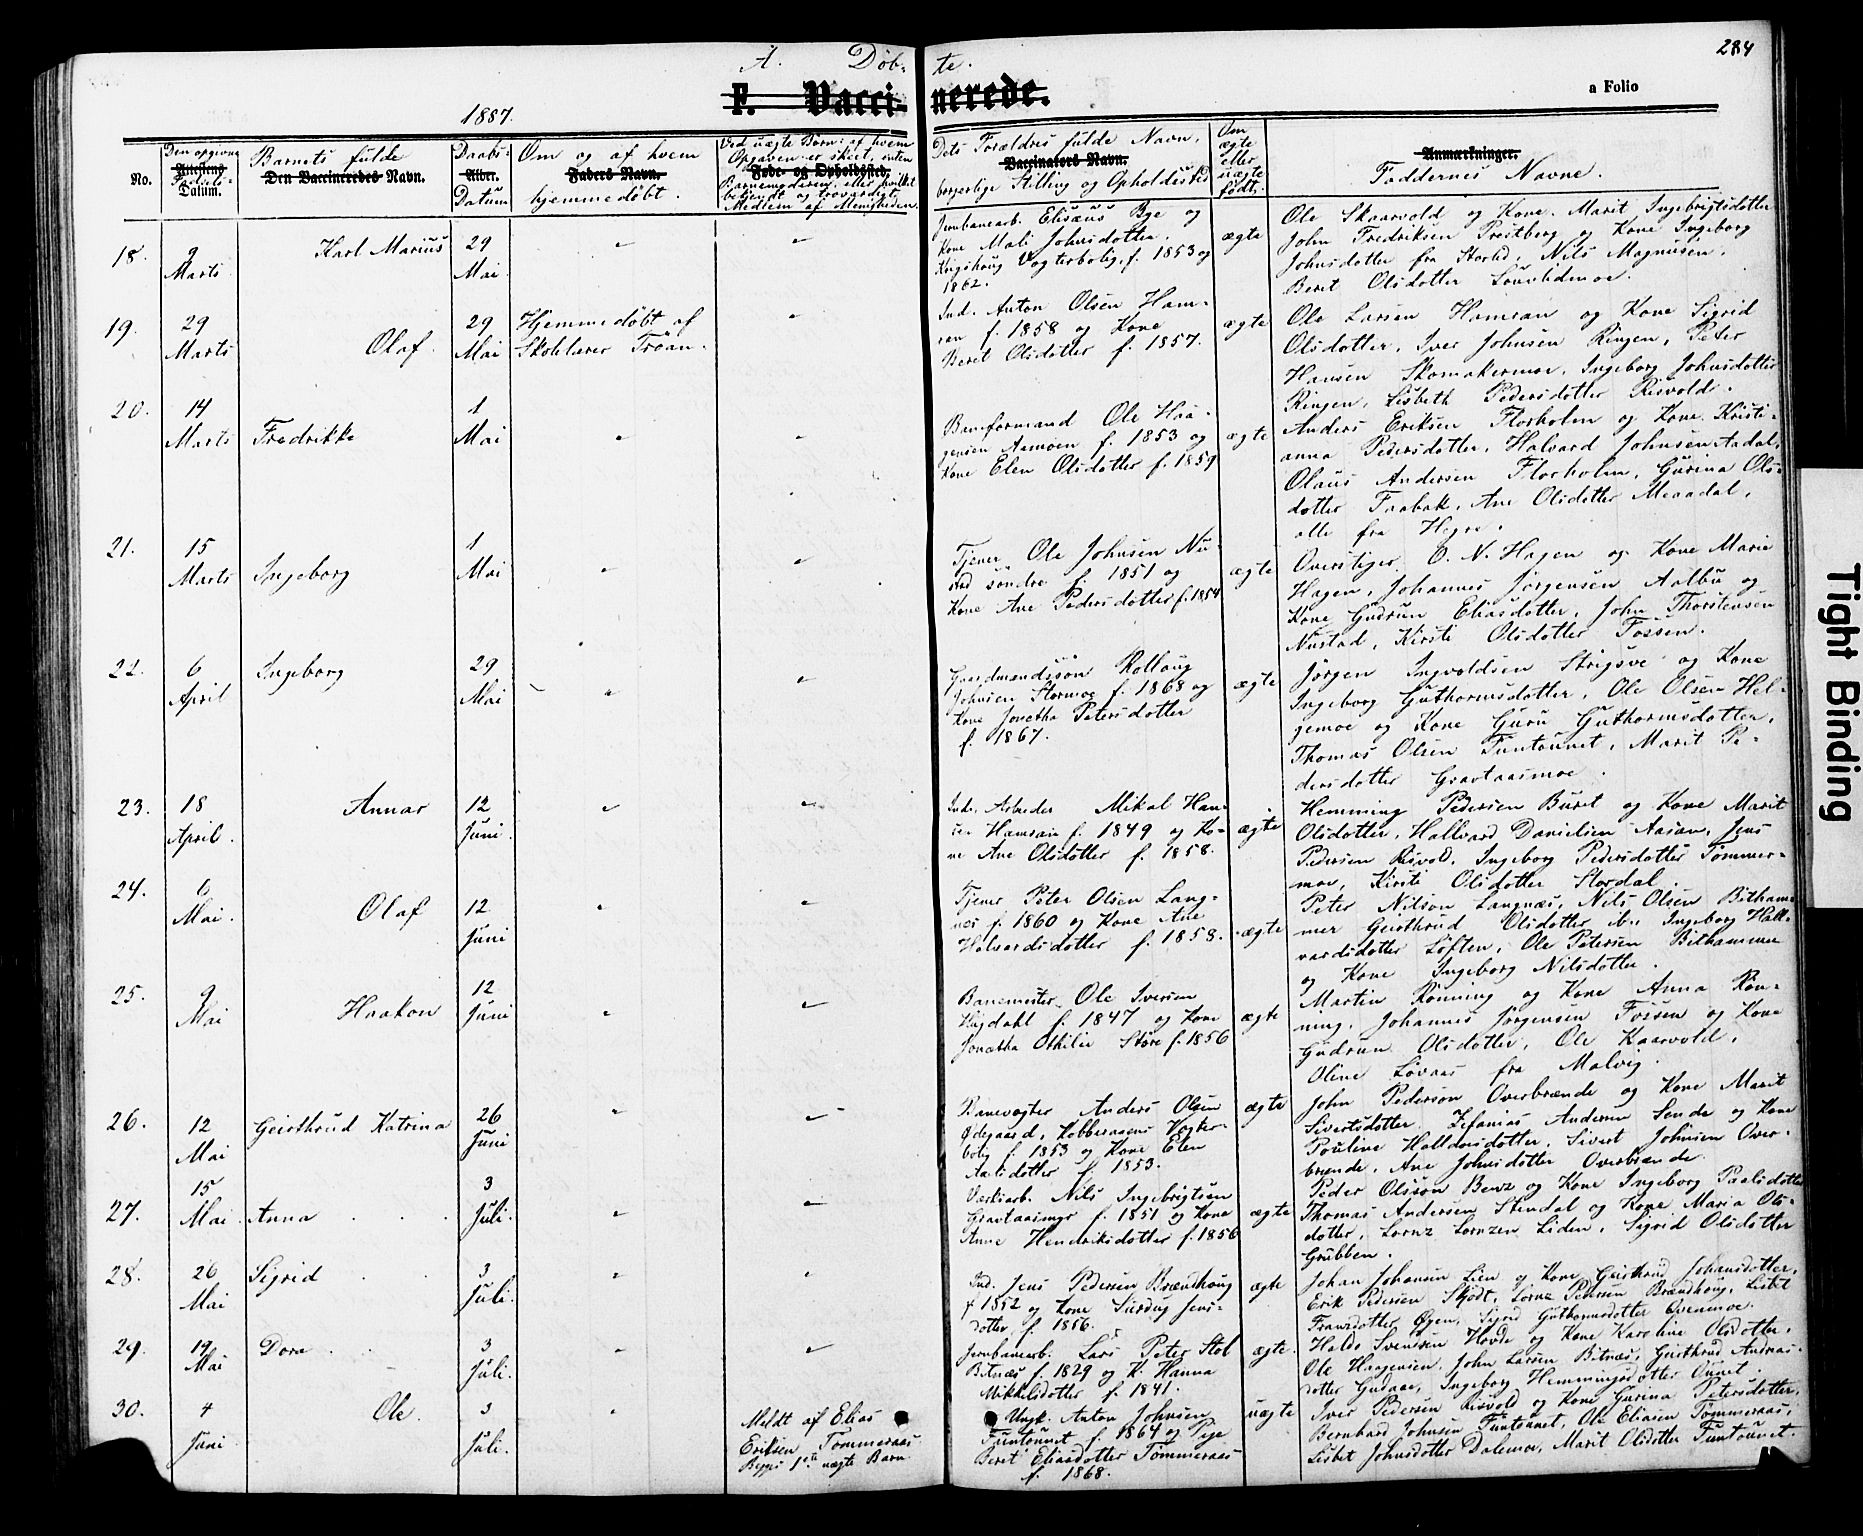 284
A. Døb- te.
F. Vacci- nerede.
a Folio
1887.
No.
Den opgivne
Attestens
Fødsels-
Datum.
Barnets fulde
Den Vaccineredes Navn.
Daabs-
Alder.
Datum
Om og af hvem
Faders Navn.
hjemmedøbt.
Ved uægte Børn: af hvem
Opgaven er skeet, enten
Føde- og Opholdssted.
Barnemoderen, eller hvilket
bekjendt og troværdigt
Medlem af Menigheden.
Dets Forældres fulde Navn,
Vaccinators Navn.
borgerlige Stilling og Opholdssted
Om
ægte
eller
uægte
født.
Anmærkninger.
Faddernes Navne.
18.
9
Marts
Karl Marius
29
Mai
Jernbanearb. Elisæus Bye og
Kone Mali Johnsdotter.
Krigshaug Vogterbolig, f. 1853 og
1862.
ægte
Ole Skaarvold og Kone Marit Ingebrigtsdotter
John Fredriksen Prestberg og Kone Ingeborg
Johnsdotter fra Storlid, Nils Magnusen,
Beret Olsdotter
19.
29
Marts
Olaf.
29
Mai
Hjemmedøbt af
Skolelærer Trøan.
Ind. Anton Olsen Ham-
ran f. 1858 og Kone
Beret Olsdotter f. 1857.
ægte
Ole Larsen Hamran og Kone Sigrid
Olsdotter, Iver Johnsen Ringen, Peter
Hansen Skomakermoe, Ingeborg Johnsdotter
Ringen, Lisbeth Pedersdotter Risvolde.
20.
14
Marts
Fredrikke
1
Mai
Baneformand Ole Haa-
gensen Aamoen f. 1853 og
Kone Elen Olsdotter f. 1859
ægte
Anders Eriksen Florholm og Kone Kristi-
anna Pedersdotter, Halvard Johnsen Aadal,
Olaus Andersen Florholm, Gurina Ols-
dotter Trabak, Ane Olsdotter Meaadal,
alle fra Hegre.
21.
15
Marts
Ingeborg
1
Mai
Tjener Ole Johnsen Nu-
stad søndre f. 1851 og
Kone Ane Pedersdotter f. 1854
ægte
Overstiger O. N. Hagen og Kone Marie
Hagen, Johannes Jørgensen Aalbu og
Kone Gudrun Eliasdotter, John Thorstensen
Nustad, Kirsti Olsdotter Fossen.
22.
6
April
Ingeborg
29
Mai
Gaardmandssøn Rollaug
Johnsen Stormoe f. 1868 og
Kone Jonetha Petersdotter
f. 1867.
ægte
Jørgen Ingvoldsen Strigsve og Kone
Ingeborg Guthormsdotter, Ole Olsen Hel-
gemoe og Kone Guru Guthormsdotter,
Thomas Olsen Funtaunet, Marit Pe-
dersdotter Gravtaasmoe.
23.
18
April.
Annar
12
Juni.
Ind. Arbeider Mikal Han-
sen Hamran f. 1849 og Ko-
ne Ane Olsdotter f. 1858.
ægte
Hemming Pedersen Buret og Kone Marit
Olsdotter, Hallvard Danielsen Aasan, Jens
Pedersen Risvold, Ingeborg Pedersdotter Tømmer-
moe, Kirsti Olsdotter Stordal.
24.
6
Mai.
Olaf
12
Juni
Tjener Peter Olsen Lang-
næs f. 1860 og Kone Ane
Halvardsdotter f. 1858.
ægte
Peter Nilson Langnæs, Nils Olsen Bitham-
mer Geirthrud Olsdotter ib., Ingeborg Hall-
vardsdotter Løften, Ole Petersen Bithammer
og Kone Ingeborg Nilsdotter.
25.
9
Mai
Haakon
12
Juni
Banemester Ole Iversen
Hugdahl f. 1847 og Kone
Jonetha Othilie Støre f. 1856
ægte
Martin Rønning og Kone Anna Røn-
ning, Johannes Jørgensen Fossen og Kone
Gudrun Olsdotter, Ole Kaarvold,
Oline Løvaas fra Malvig.
26.
12
Mai
Geirthrud Katrina
26
Juni
Banevogter Anders Olsen
Ødegaard, Kobberaaens Vogter-
bolig f. 1853 og Kone Elen
f. 1853.
ægte
John Pederson Overbrænde og Kone Marit
Sivertsdotter, Zefanias Andersen Sende og Kone
Pauline Halldorsdotter, Sivert Johnsen Over-
brænde, Ane Johnsdotter Overbrænde.
27.
15
Mai.
Anna
3
Juli.
Værksarb. Nils Ingebrigtsen
Gravtaasmyr f. 1851 og Kone
Anne Hendriksdotter f. 1856
ægte
Peder Olsson Benz og Kone Ingeborg Paalsdotter
Thomas Andersen Stendal og Kone Maria Ols-
dotter, Lornz Lornzen Liden, Sigrid Olsdotter
Grubben.
28.
26
Mai
Sigrid
3
Juli.
Ind. Jens Pedersen Brændhaug
f. 1852 og Kone Jens-
dotter f. 1856.
ægte
Johan Johansen Lien og Kone Geirthrud Johansdotter,
Erik Pedersen Skjødt, Lorns Pedersen Brændhaug, Lisbet
Fransdotter Øyen, Sigrid Guthormsdotter Ovenmoe.
29.
19
Mai
Dora
3
Juli.
Jernbanearb. Lars Peter Stol
Bitnæs f. 1829 og K. Hanna
Mikkelsdotter f. 1841.
ægte.
Haldo Svensen Hovde og Kone Karoline Olsdotter,
Ole Haagensen, John Larsen Bitnæs, Geirthrud Andreas-
dotter Gudaae, Ingeborg Hemmingsdotter
30.
4
Juni
Ole
3
Juli.
Meldt af Elias
Eriksen Tømmeraas
Begges 1ste uægte Barn
Ungk. Anton Johnsen
Funtaunet f. 1864 og Pige
Beret Eliasdotter Tømmeraas
f. 1868.
uægte
Iver Pedersen Risvold og Kone Gurina Petersdotter,
Bernhard Johnsen Funtaunet, Ole Eliasen Tømmeraas,
Lisbet Johnsdotter Dalemoe, Marit Olsdotter Funtaunet.
Tight Binding